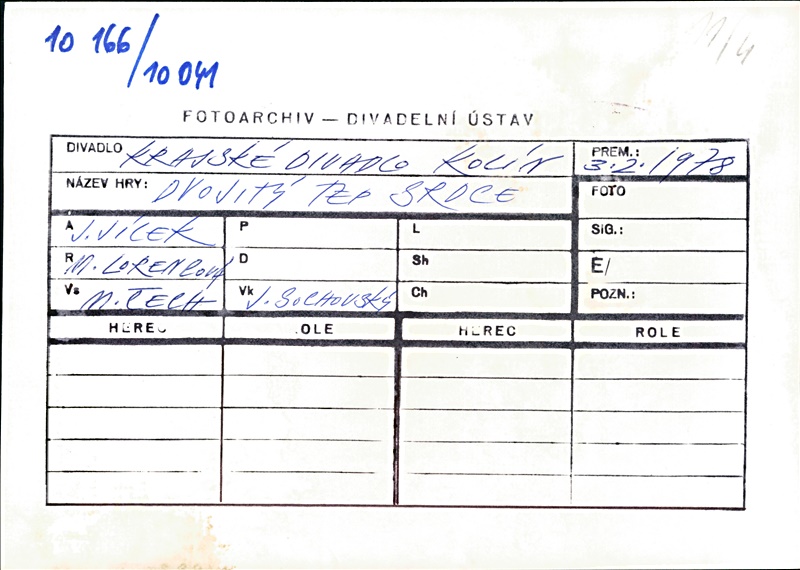 10 166/
10 041
11/4
FOTOARCHIV — DIVADELNÍ ÚSTAV
DIVADLO KRAJSKÉ DIVADLO KOLÍN PREM.: 3. 2. 1978
NÁZEV HRY: DVOJITÝ TEP SRDCE FOTO
A J. JÍLEK P L SIG.:
R M. LORENCOVÁ D Sh E/
Vs M. ČECH Vk J. SOCHOVSKÝ Ch POZN.:
HEREC ROLE HEREC ROLE